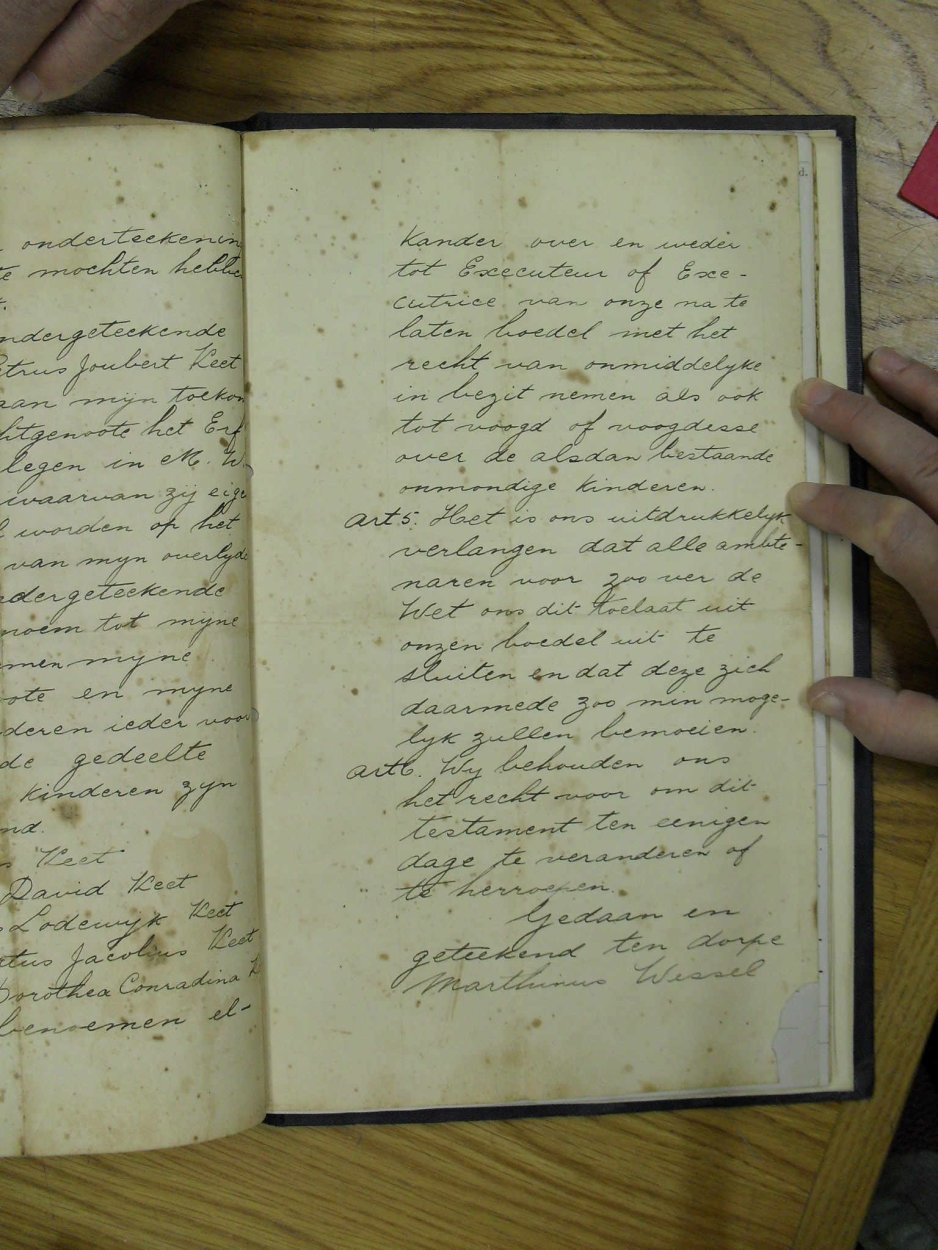 onderteekenin
te mochten hebbe
ndergeteekende
etrus Joubert Keet
aan mijn toekom
htgenoote het Erf
legen in M. W.
waarvan zij eige
worden op het
van mijn overlyde
dergeteekende
noem tot myne
emen myne
oote en myne
deren ieder voor
de gedeelte
kinderen zyn
nd.
Keet
David Keet
Lodewyk Keet
atus Jacobus Keet
Dorothea Conradina K
benoemen el-
kander over en weder
tot Executeur of Exe-
cutrice van onze na te
laten boedel met het
recht van onmiddelyke
in bezit nemen als ook
tot voogd of voogdesse
over de alsdan bestaande
onmondige kinderen.
Art 5. Het is ons uitdrukkelyk
verlangen dat alle ambte-
naren voor zoo ver de
Wet ons dit toelaat uit
onzen boedel uit te
sluiten en dat deze zich
daarmede zoo min moge-
lyk zullen bemoeien.
Art 6. Wy behouden ons
het recht voor om dit
testament ten eenigen
dage te veranderen of
te herroepen.
Gedaan en
geteekend ten dorpe
Marthinus Wessel
d.